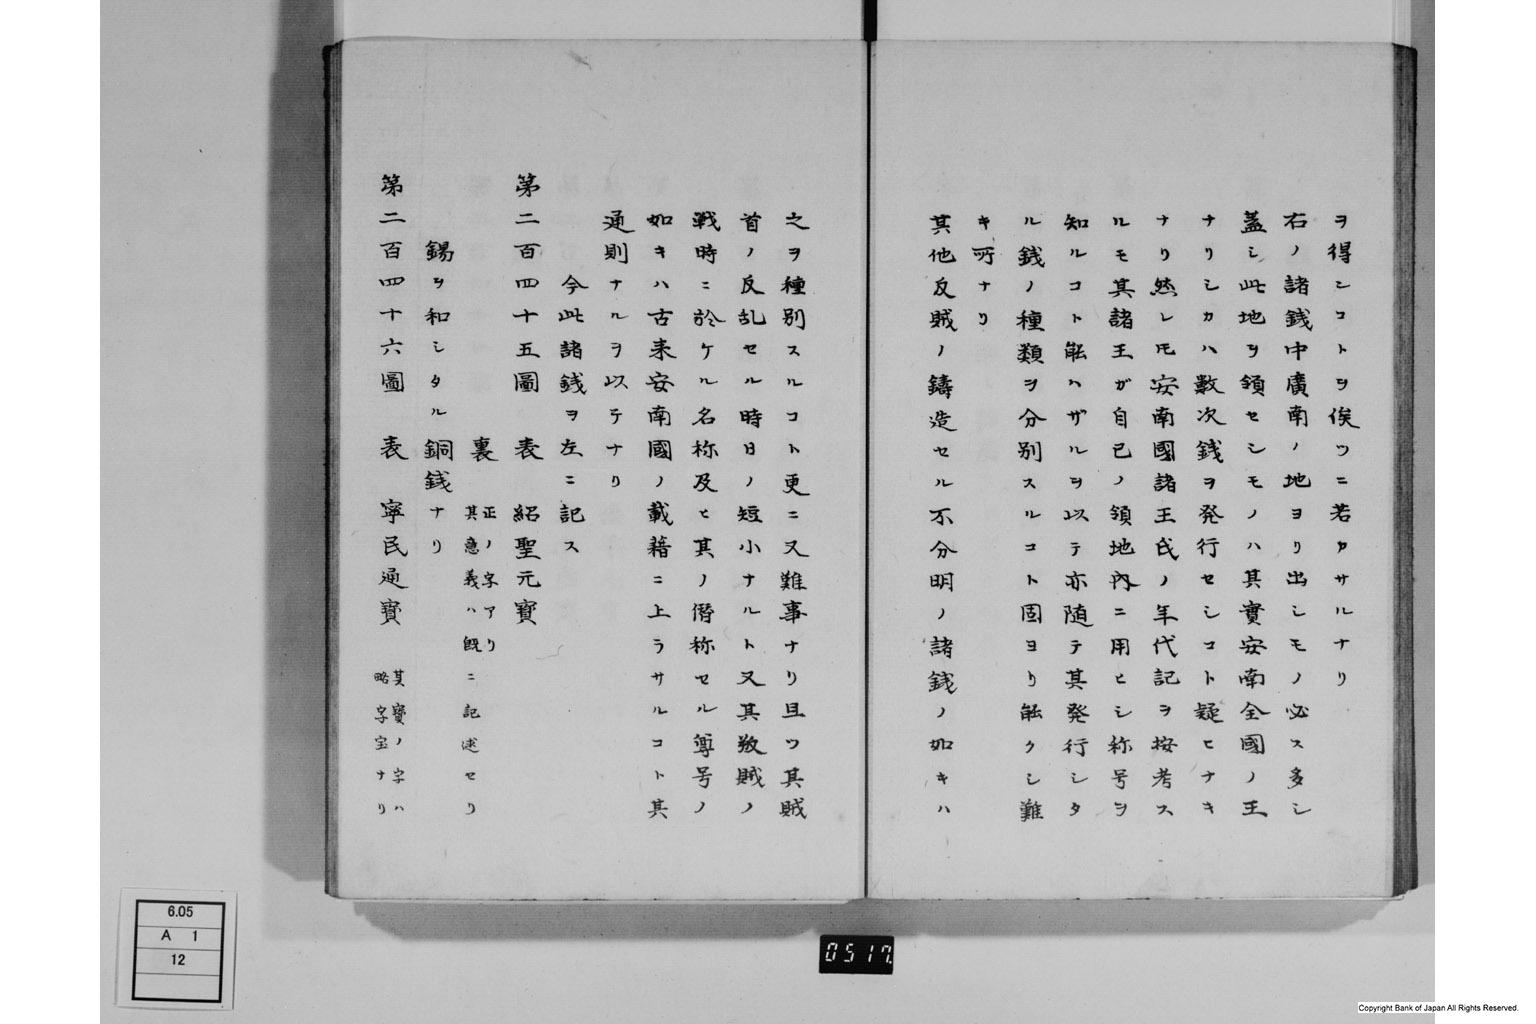 ヲ得ンコトヲ俟ツニ若カサルナリ
右ノ諸銭中廣南ノ地ヨリ出シモノ必ス多シ
蓋シ此地ヲ領セシモノハ其實安南全國ノ王
ナリシカハ數次銭ヲ発行セシコト疑ヒナキ
ナリ然レ𪜈安南國諸王氏ノ年代記ヲ按考ス
ルモ其諸王ガ自己ノ領地內ニ用ヒシ称号ヲ
知ルコト能ハザルヲ以テ亦随テ其発行シタ
ル銭ノ種類ヲ分別スルコト固ヨリ能クシ難
キ所ナリ
其他反賊ノ鑄造セル不分明ノ諸銭ノ如キハ
之ヲ種別スルコト更ニ又難事ナリ且ツ其賊
首ノ反乱セル時日ノ短小ナルト又其敵賊ノ
戦時ニ於ケル名称及ヒ其ノ僭称セル尊号ノ
如キハ古来安南國ノ載籍ニ上ラサルコト其
通則ナルヲ以テナリ
今此諸銭ヲ左ニ記ス
第二百四十五圖 表 紹聖元寳
裏 正ノ字アリ
其意義ハ既ニ記述セリ
錫ヲ和シタル銅銭ナリ
第二百四十六圖 表 寧民通寳 其寳ノ字ハ
略字宝ナリ
6.05
A 1
12
0517.
Copyright Bank of Japan All Rights Reserved.